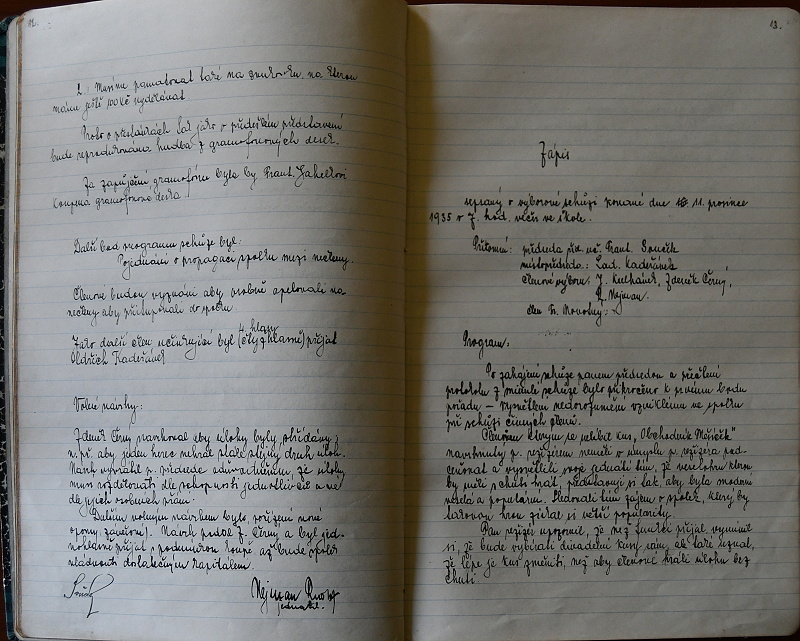 12.
2. Musíme pamatovat také na
máme ještě
Proto o přestávkách tak jako o předešlém představení
bude reprodukována hudba z gramofonových desek.
Za zapůjčení gramofonu byla by Frant.
koupena gramofonová deska
Další bod programu schůze byl:
Pojednání o propagaci spolku mezi nečleny.
Členové budou vyzváni aby osobně apelovali na
nečleny aby přistupovali do spolku
4 hlasy
Jako další člen učinkující byl (čtyřhlasně) přijat
Oldřich Kadeřánek
Volné návrhy:
Zdeněk Černý navrhoval aby úlohy byly obřídány;
n. př. aby jeden herec nehrál stále stejný druh úloh.
Návrh vyvrátil p. předseda odůvodněním, že úlohy
musí rozdělovati dle schopností jednotlivců a ne
dle jejich osobních přání.
Dalším volným návrhem bylo, pořízení nové
opony. Návrh podal Z. Černý a byl jed-
nohlasně přijat s podmínkou koupě až bude spolek
vládnouti dostatečným kapitálem.
Nejman
jednatel.
13.
Zápis
sepsaný o výborové schůzi konané dne 11. prosince
1935 v 7. hod. večer ve škole.
Přítomni: předseda pan uč. Frant. Souček
místopředseda: Lad. Kadeřánek
členové výboru: J. Kulhánek, Zdeněk Černý,
R. Nejman.
člen Fr. Novotný.
Program:
Po zahájení schůze panem předsedou a přečtení
protokolu z minulé schůze bylo přikročeno k prvnímu bodu
pořadu – vysvětlení nedorozumění vzniklému ve spolku
při schůzi činných členů.
Členům kterým se nelíbil kus „Obchodník
navrhnutý p. režisérem neměli v úmyslu p. režiséra pod-
ceňovat a vysvětlili svoje jednání tím, že veselohru kterou
by měli s chutí hrát, představují si tak, aby byla moderní
veselá a populární. Sledovali tím zájem o spolek, který by
takovou hrou získal si větší popularity.
Pan režisér upozornil, že než funkci přijal, vymínil
si, že bude vybírati divadelní kusy sám, ale také uznal,
že lépe je kus změniti, než aby členové hráli úlohu bez
chuti.